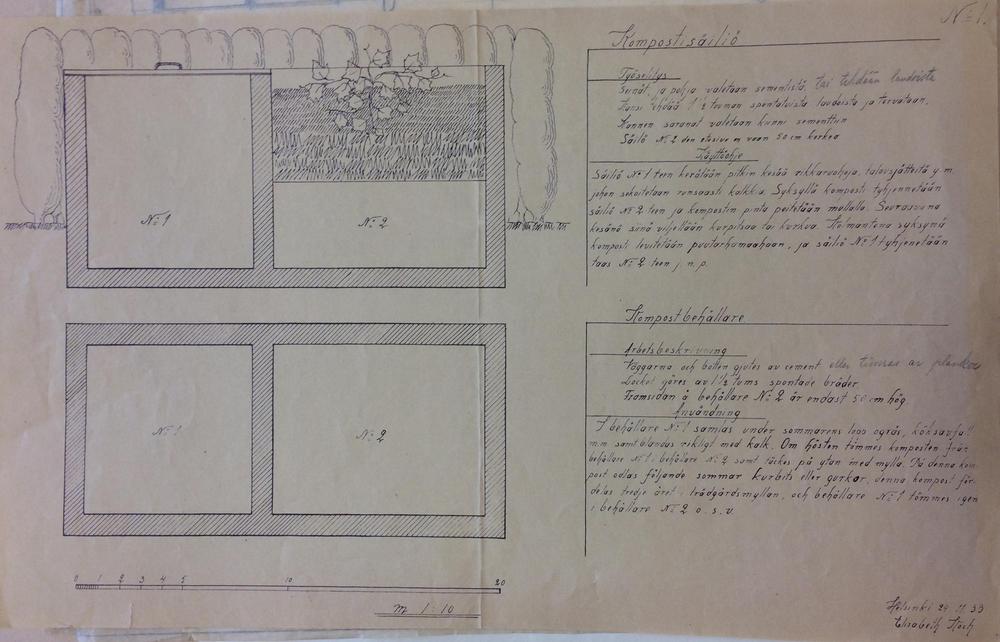 No 1.
Kompostisäiliö
Työselitys
Seinät ja pohja valetaan sementistä, tai tehdään laudoista
Kansi tehdää 1½ tuuman spontatuista laudoista ja tervataan,
Kannen saranat valetaan kiinni sementtiin
Säilö No 2 den etusive on vaan 50 cm korkea
Käyttöohje
Säiliö No 1 teen kerätään pitkin kesää rikkaruohoja, talousjätteitä y.m.
johon sekoitetaan runsaasti kalkkia. Syksyllä komposti tyhjennetään
säiliö No 2 teen ja kompostin pinta peitetään mullalla. Seuraavana
kesänä siinä viljellään kurpitsaa tai kurkua. Kolmantena syksynä
komposti levitetään puutarhamaahaan, ja säiliö No 1 tyhjenetään
taas No 2 teen j. n. p.
Kompostbehållare
Arbetsbeskrivning
Väggarna och botten gjutes av cement eller timras av plankor
Locket göres av 1½ tums spontade bräder
Framsidan å behållare No 2 är endast 50 cm hög
Användning
I behållare No 1 samlas under sommarens lopp ogräs, köksavfall
m.m samt blandas rikligt med kalk. Om hösten tömmes komposten från
behållare No 1 i behållare No 2 samt täckes på ytan med mylla. På denna kom-
post odlas följande sommar kurbits eller gurkor, denna kompost för-
delas tredje året i trädgårdsmyllan, och behållare No 1 tömmes igen
i behållare No 2 o. s. v.
No 1
No 2
No 1
No 2
0 1 2 3 4 5 10 20
m 1:10
Helsinki 29 11 33
Elisabeth Koch